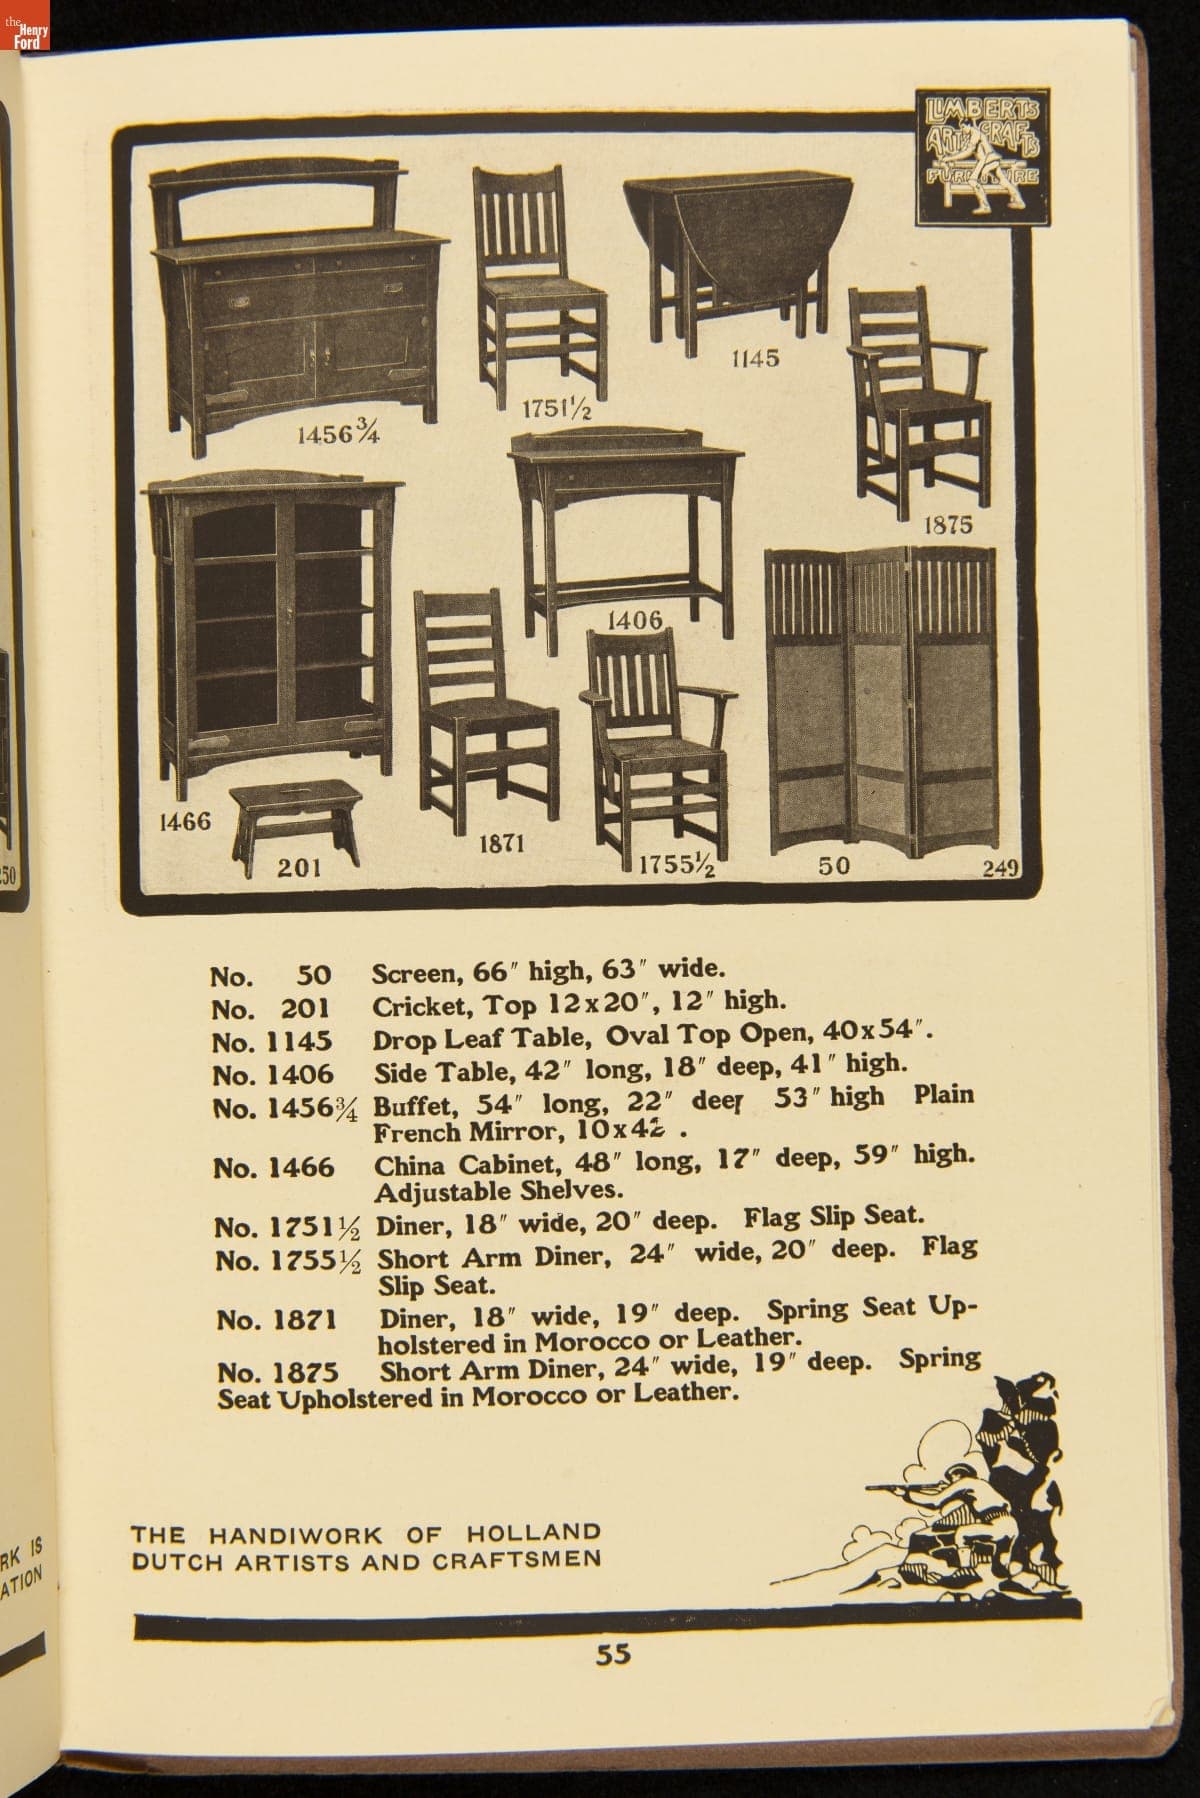 the
Henry
Ford
LIMBERTS
ARTS CRAFTS
FURNITURE
1456¾
1751½
1145
1875
1466
201
1871
1406
1755½
50
249
250
No. 50 Screen, 66″ high, 63″ wide.
No. 201 Cricket, Top 12x20″, 12″ high.
No. 1145 Drop Leaf Table, Oval Top Open, 40x54″.
No. 1406 Side Table, 42″ long, 18″ deep, 41″ high.
No. 1456¾ Buffet, 54″ long, 22″ deep 53″ high Plain
French Mirror, 10x42 .
No. 1466 China Cabinet, 48″ long, 17″ deep, 59″ high.
Adjustable Shelves.
No. 1751½ Diner, 18″ wide, 20″ deep. Flag Slip Seat.
No. 1755½ Short Arm Diner, 24″ wide, 20″ deep. Flag
Slip Seat.
No. 1871 Diner, 18″ wide, 19″ deep. Spring Seat Up-
holstered in Morocco or Leather.
No. 1875 Short Arm Diner, 24″ wide, 19″ deep. Spring
Seat Upholstered in Morocco or Leather.
THE HANDIWORK OF HOLLAND
DUTCH ARTISTS AND CRAFTSMEN
RK IS
ATION
55